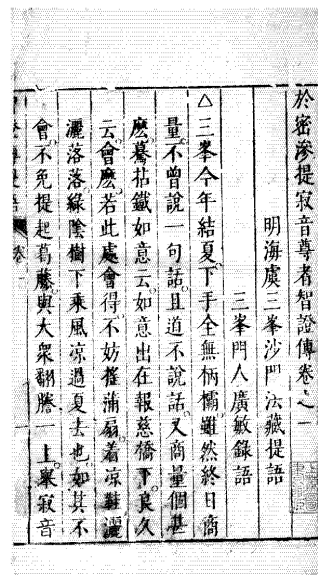 於密滲提寂音尊者智證傳卷之一
明海虞三峯沙門法藏提語
三峯門人廣敏錄語
△三峯今年結夏下手全無柄欛雖然終日商
量不曾說一句話且道不說話又商量個甚
麼驀拈鐵如意云如意出在報慈橋下良久
云會麼若此處會得不妨搖蒲扇着凉鞋灑
灑落落綠陰樹下乘風凉過夏去也如其不
會不免提起葛藤與大眾翻謄一上舉寂音